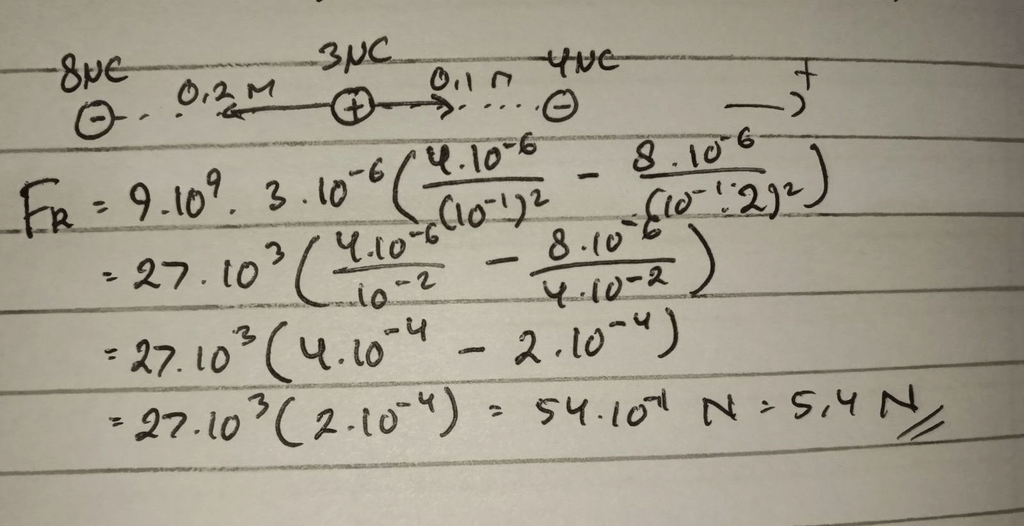 -8μC 3μC -4μC
⊖ 0,2 m ⊕ 0,1 m ⊖ → +
FR = 9.10⁹. 3.10⁻⁶ (4.10⁻⁶/(10⁻¹)² - 8.10⁻⁶/(10⁻¹.2)²)
= 27.10³ (4.10⁻⁶/10⁻² - 8.10⁻⁶/4.10⁻²)
= 27.10³ (4.10⁻⁴ - 2.10⁻⁴)
= 27.10³ (2.10⁻⁴) = 54.10⁻¹ N = 5,4 N